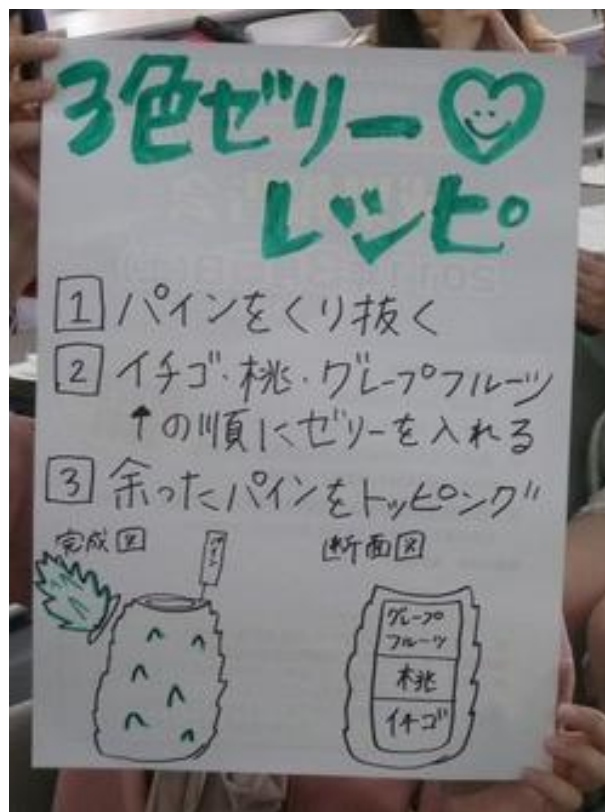 3色ゼリー
レシピ
1 パインをくり抜く
2 イチゴ・桃・グレープフルーツ
↑の順にゼリーを入れる
3 余ったパインをトッピング
完成図
パイン
断面図
グレープ
フルーツ
桃
イチゴ